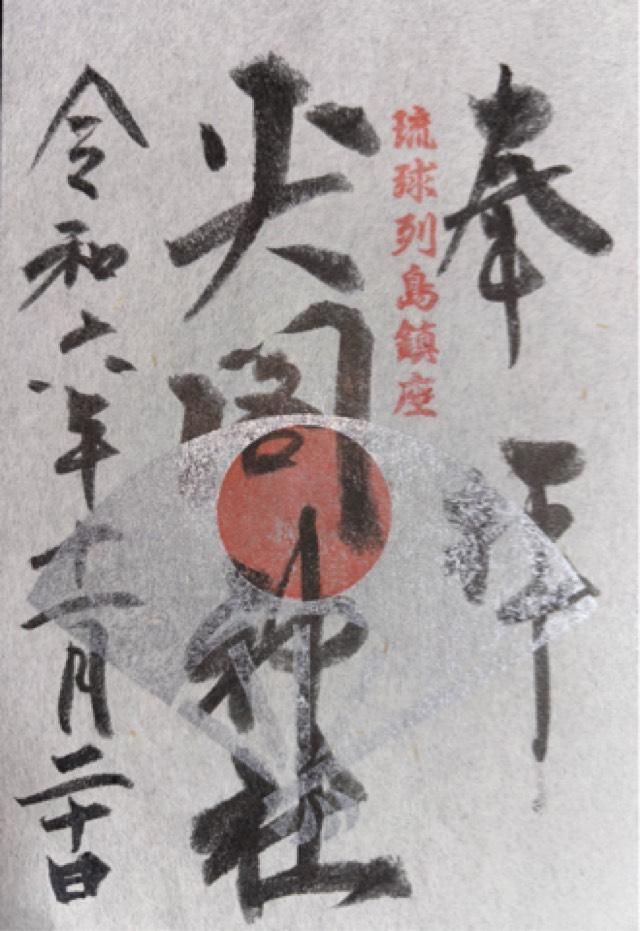 奉拝
琉球列島鎮座
尖閣神社
令和六年十一月二十日